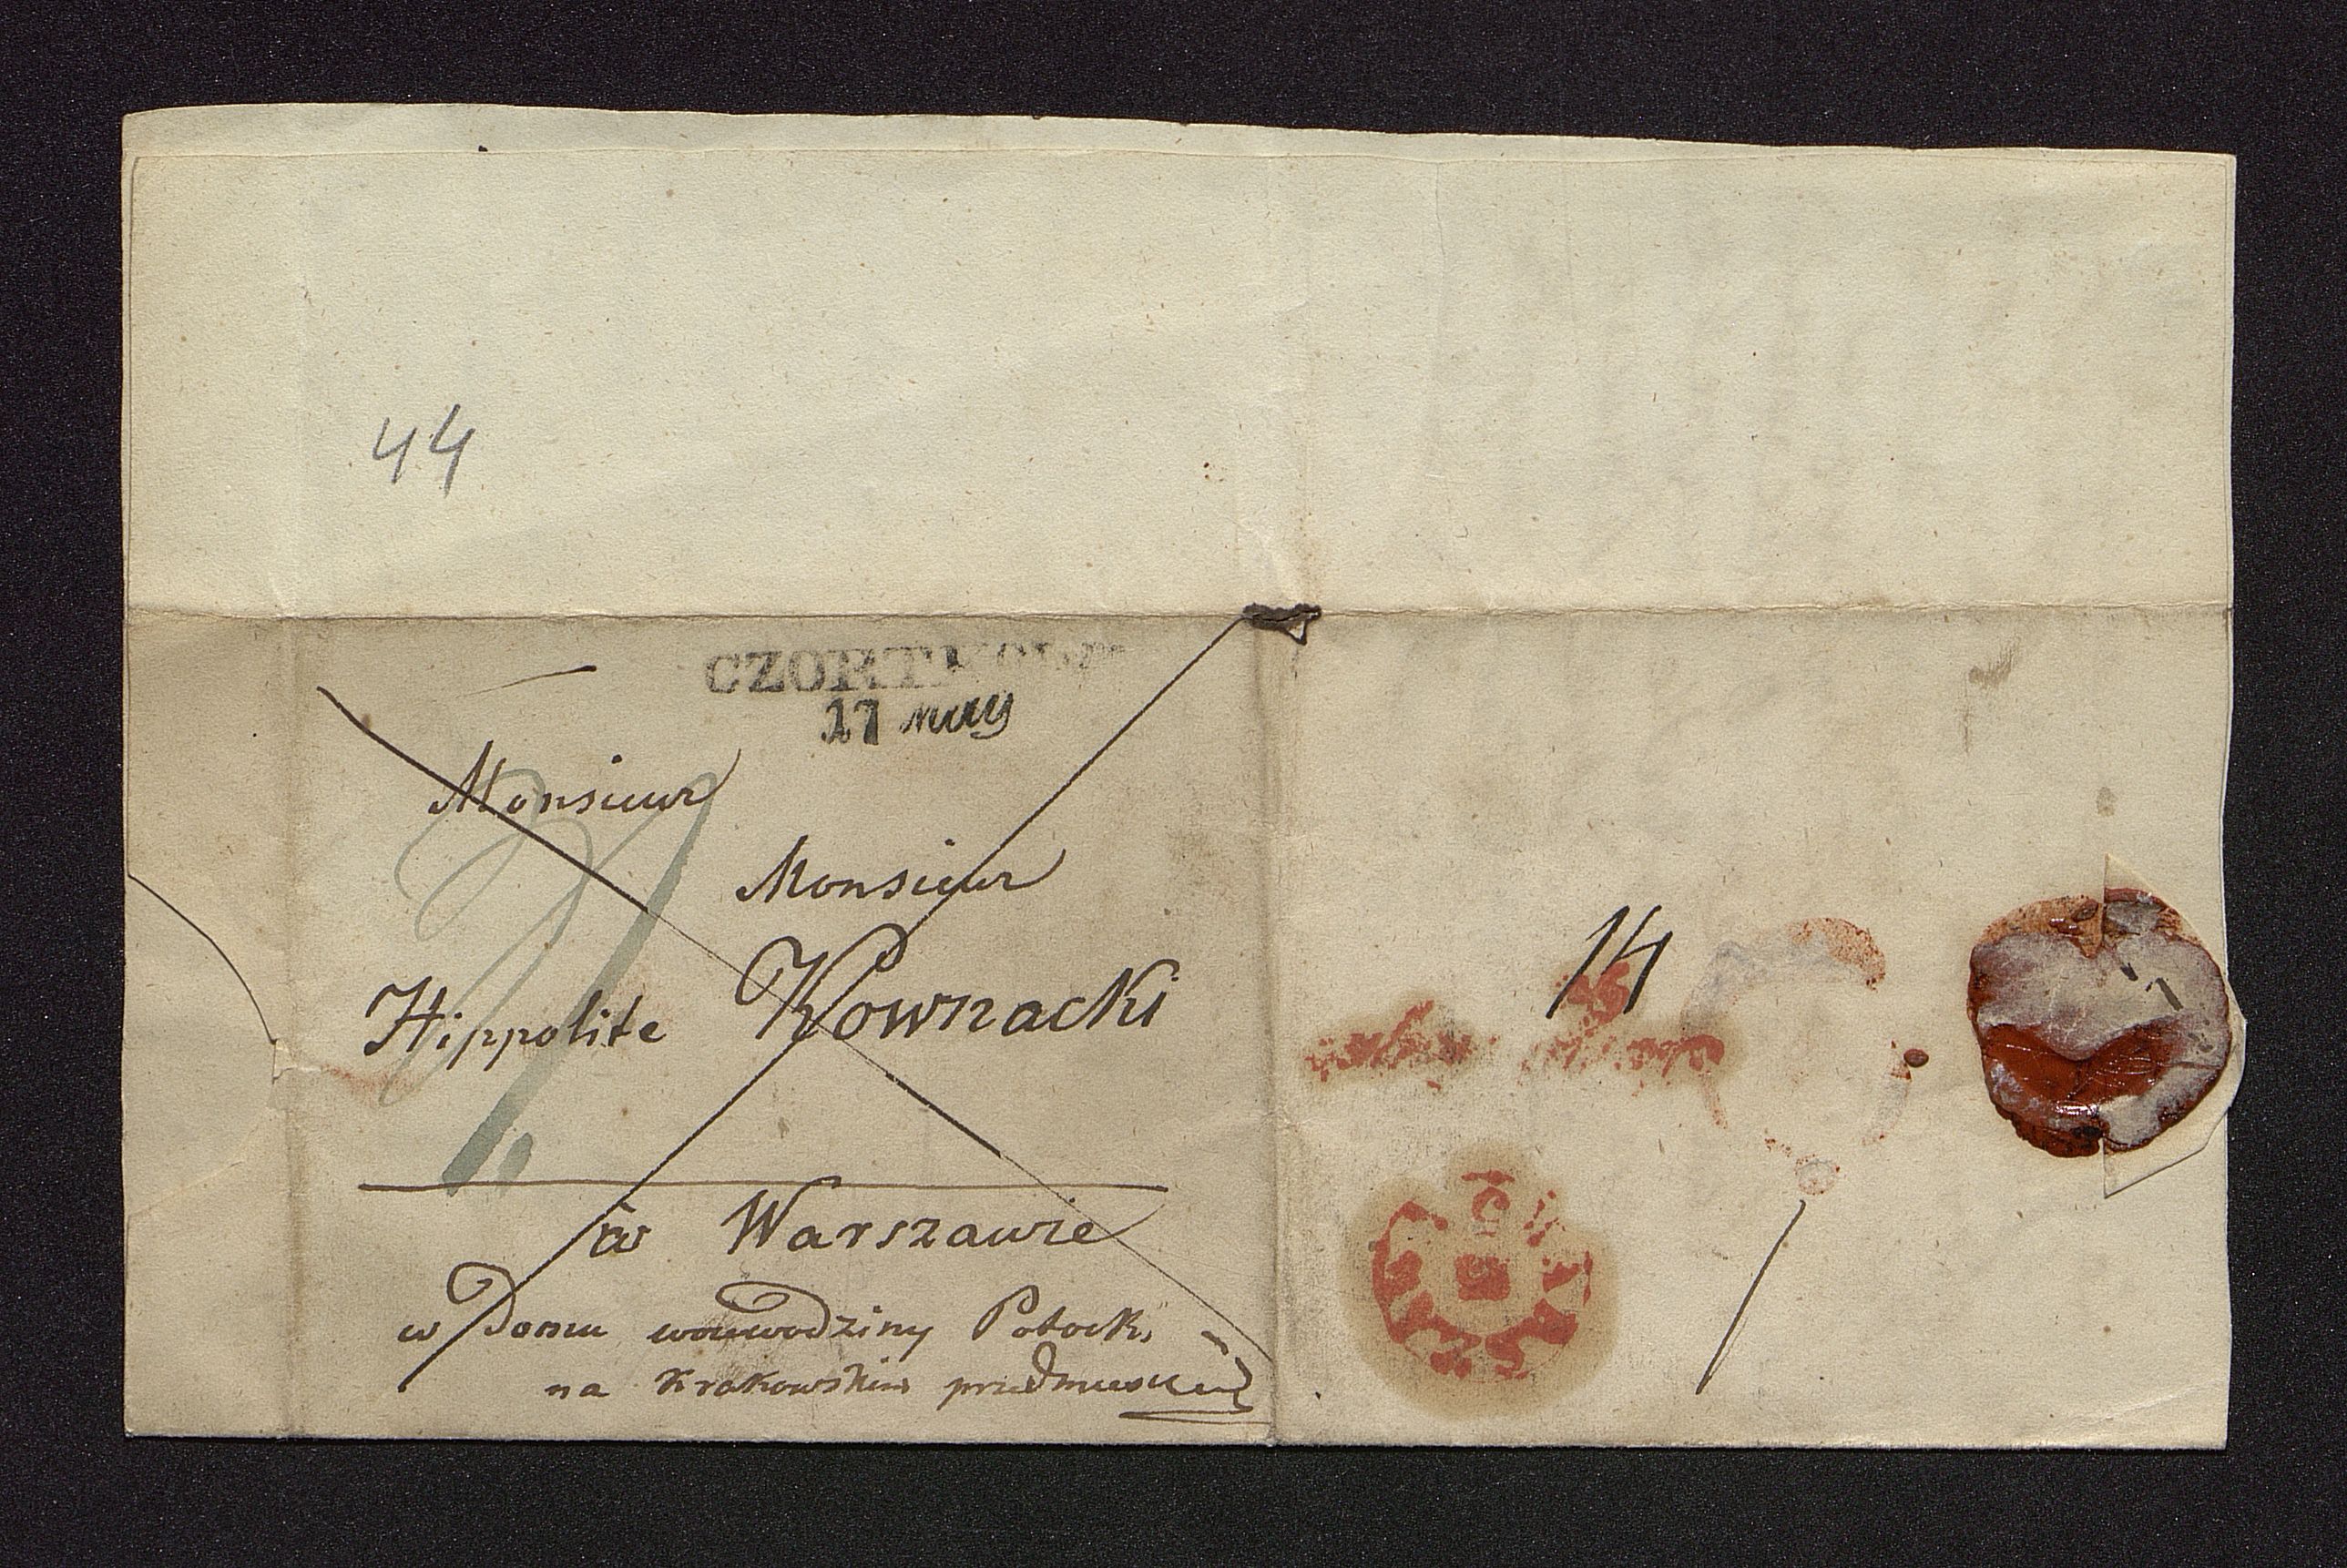 44
CZORTKOW
17 may
Monsieur
Monsieur
Hippolite Kownacki
w Warszawie
w Domu woiewodziny Potocki
na Krakowskim przedmiesciu
14